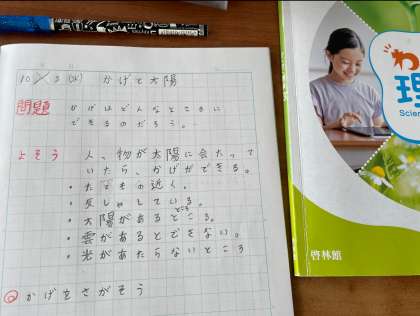 10/2(水) かげと太陽
問題 かげはどんなところに
できるのだろう。
よそう 人、物が太陽に会たって
いたら、かげができる。
・たてもの近く。
・反しゃしている。
ところ
・太陽があるところ。
・雲があるとできない。
・光があたらないところ
かげをさがそう
わ
理
Scien
啓林館